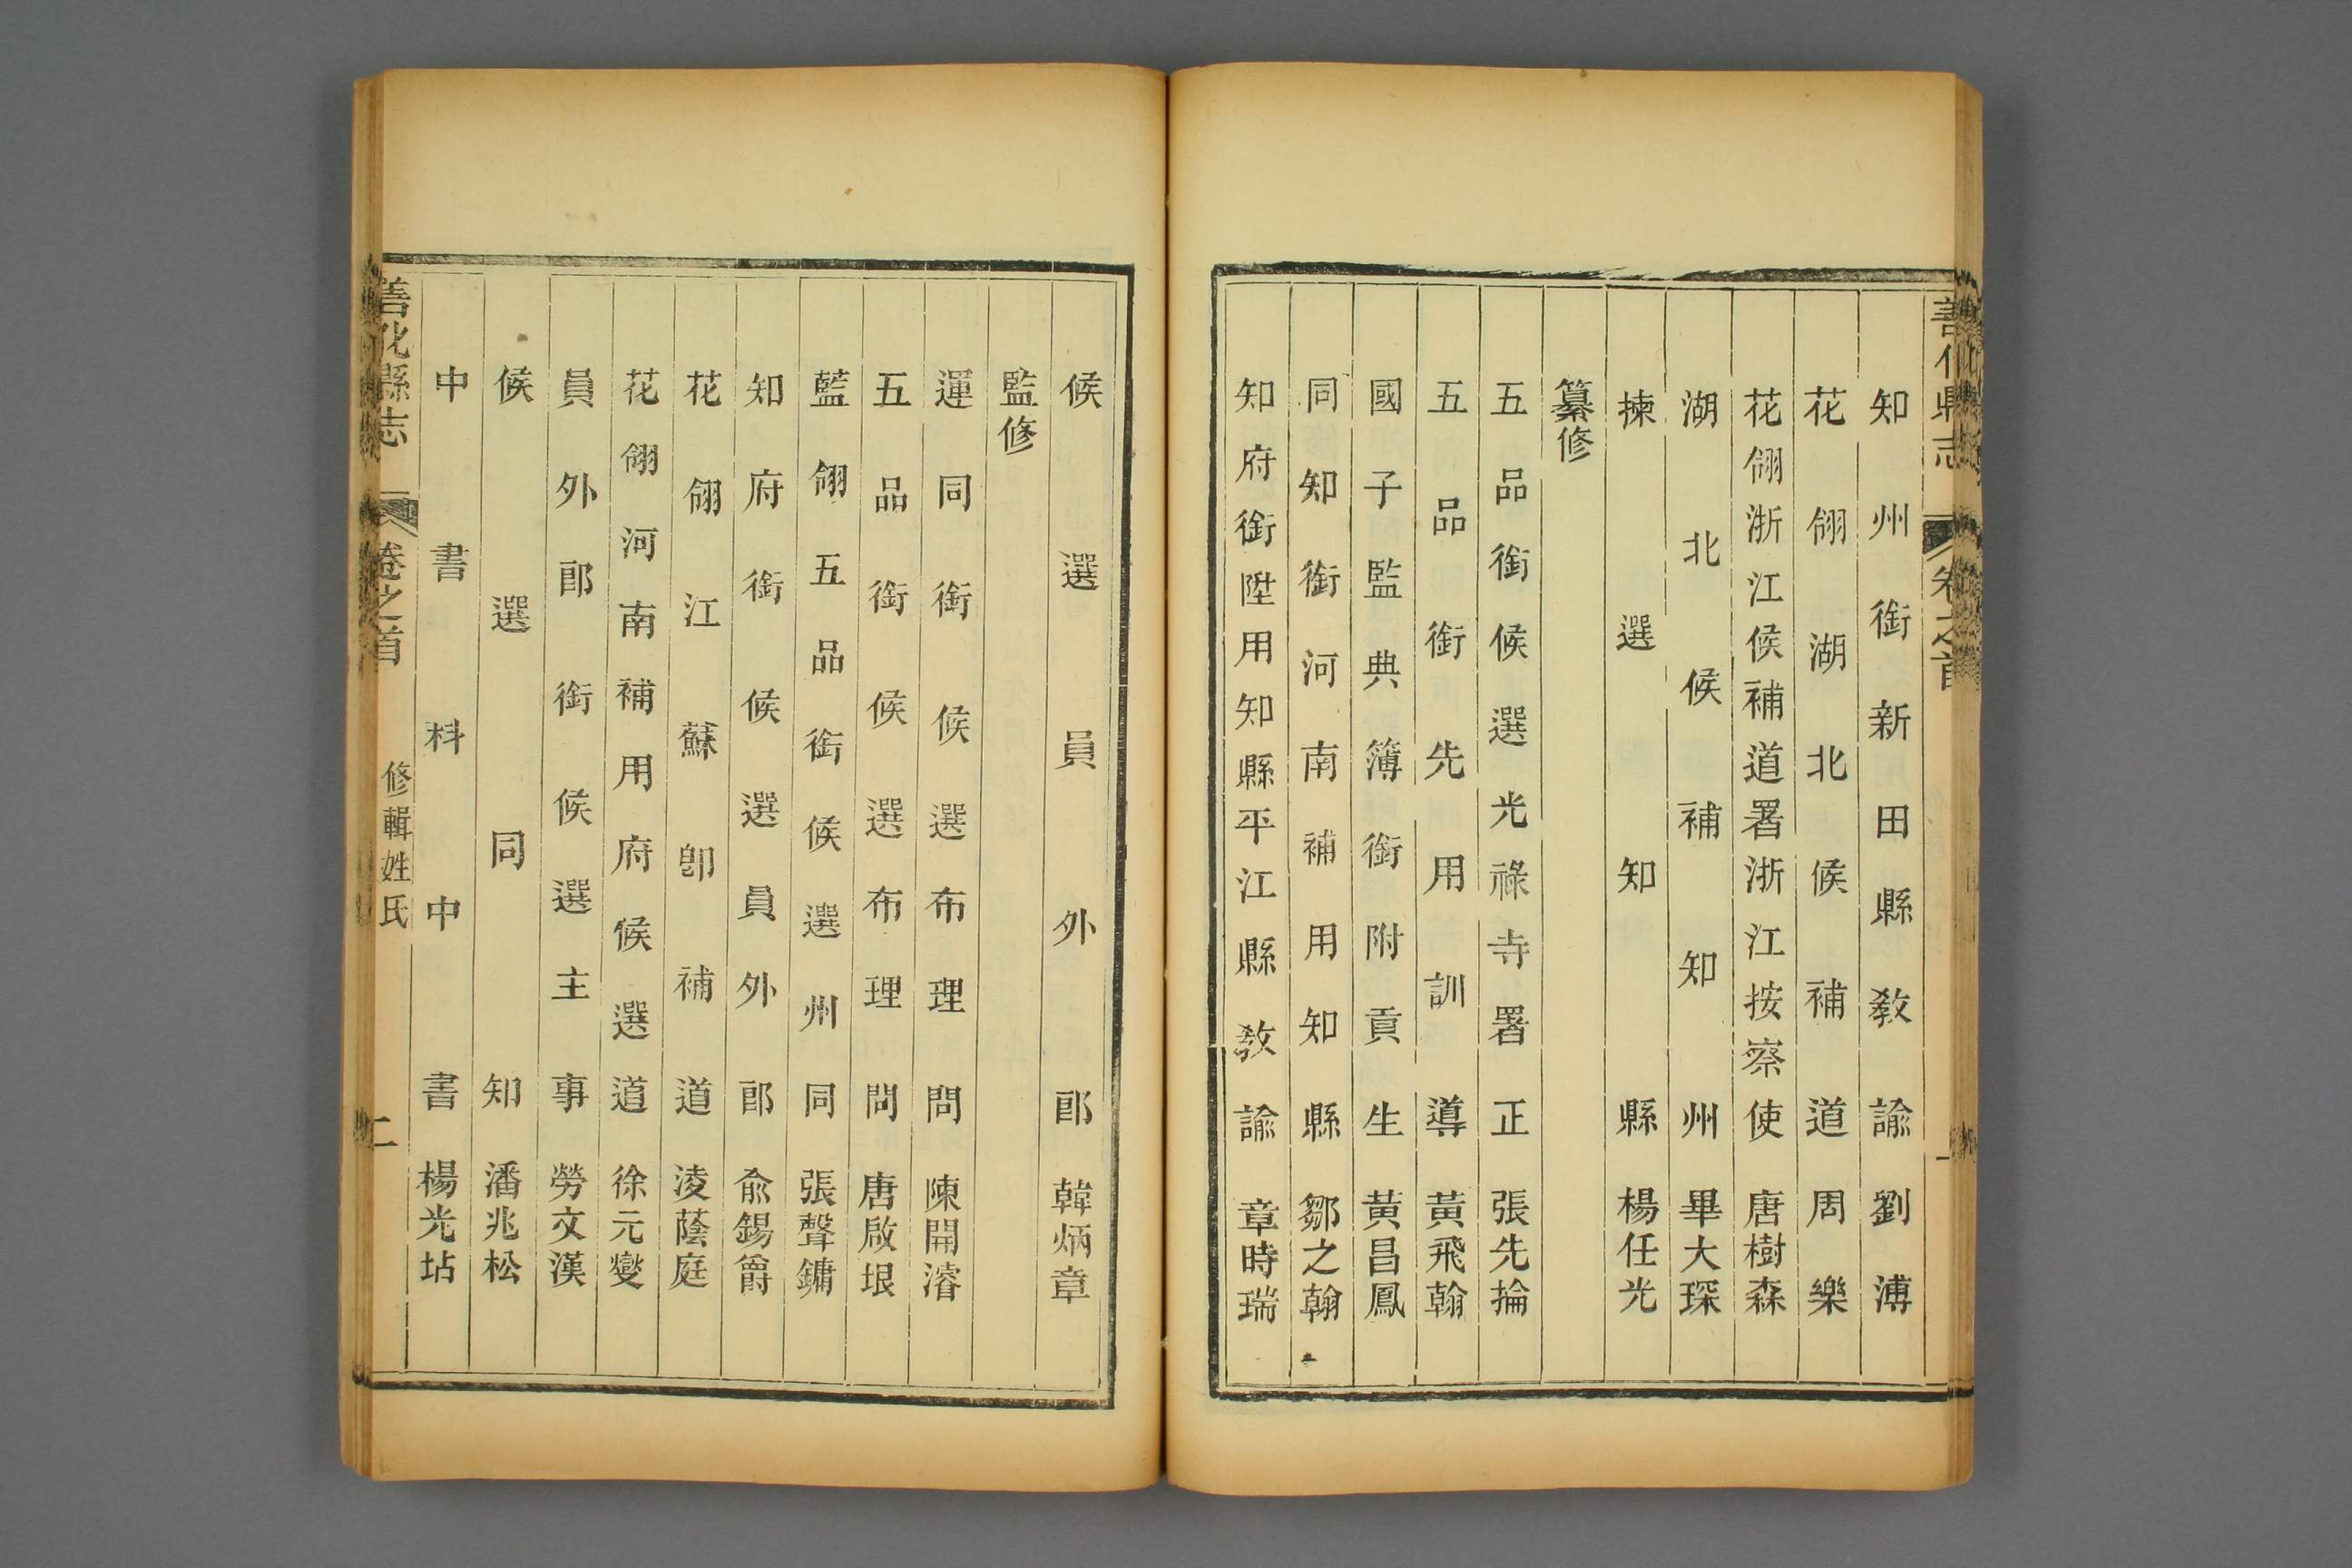 善化縣志 卷之首
知州銜新田縣敎諭劉溥
花翎湖北候補道周樂
花翎浙江候補道署浙江按察使唐樹森
湖北候補知州畢大琛
揀選知縣楊任光
纂修
五品銜候選光祿寺署正張先掄
五品銜先用訓導黃飛翰
國子監典簿銜附貢生黃昌鳳
同知銜河南補用知縣鄒之翰
知府銜陞用知縣平江縣敎諭章時瑞
候選員外郎韓炳章
監修
運同銜候選布理問陳開濬
五品銜候選布理問唐啟垠
藍翎五品銜候選州同張聲鏞
知府銜候選員外郎俞錫爵
花翎江蘇卽補道淩蔭庭
花翎河南補用府候選道徐元燮
員外郎銜候選主事勞文漢
候選同知潘兆松
中書科中書楊光坫
善化縣志 卷之首 修輯姓氏 二